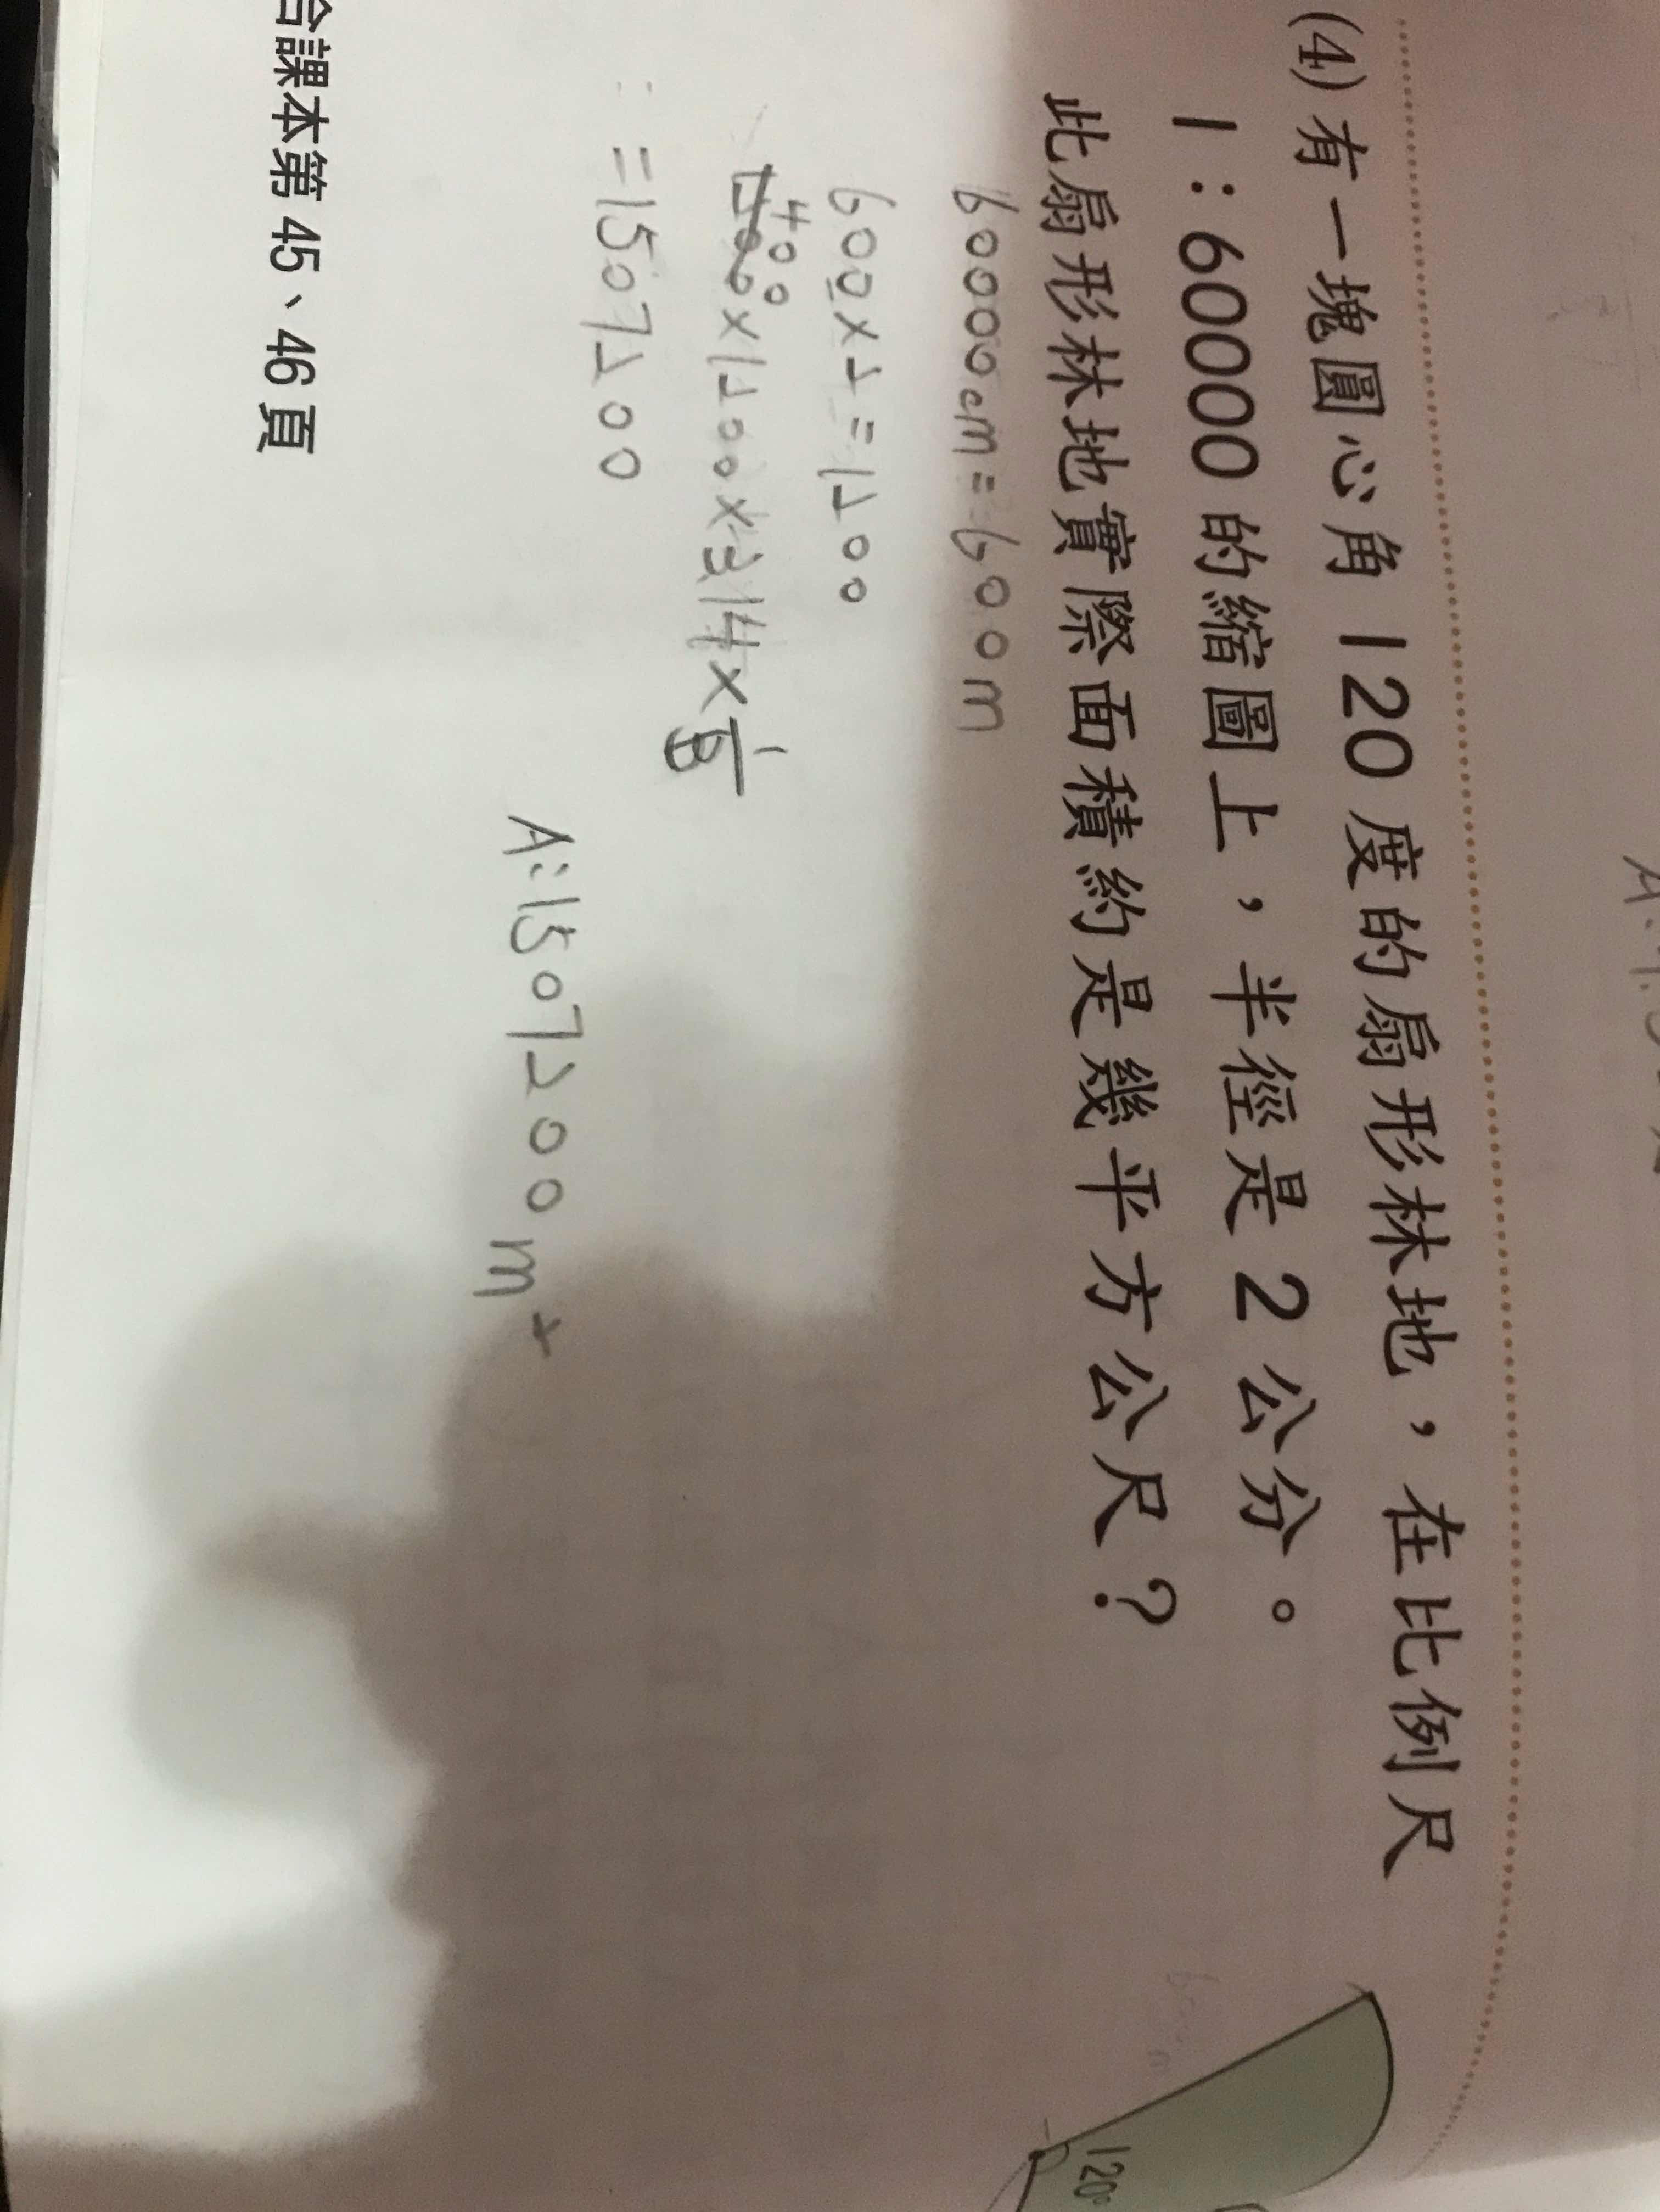 (4)有一塊圓心角 120 度的扇形林地，在比例尺
1：60000 的縮圖上，半徑是 2 公分。
此扇形林地實際面積約是幾平方公尺？
120°
60000cm=600m
600×2=1200
400
1200×1200×3.14×1/3
=1507200
A:1507200m²
合課本第 45、46 頁